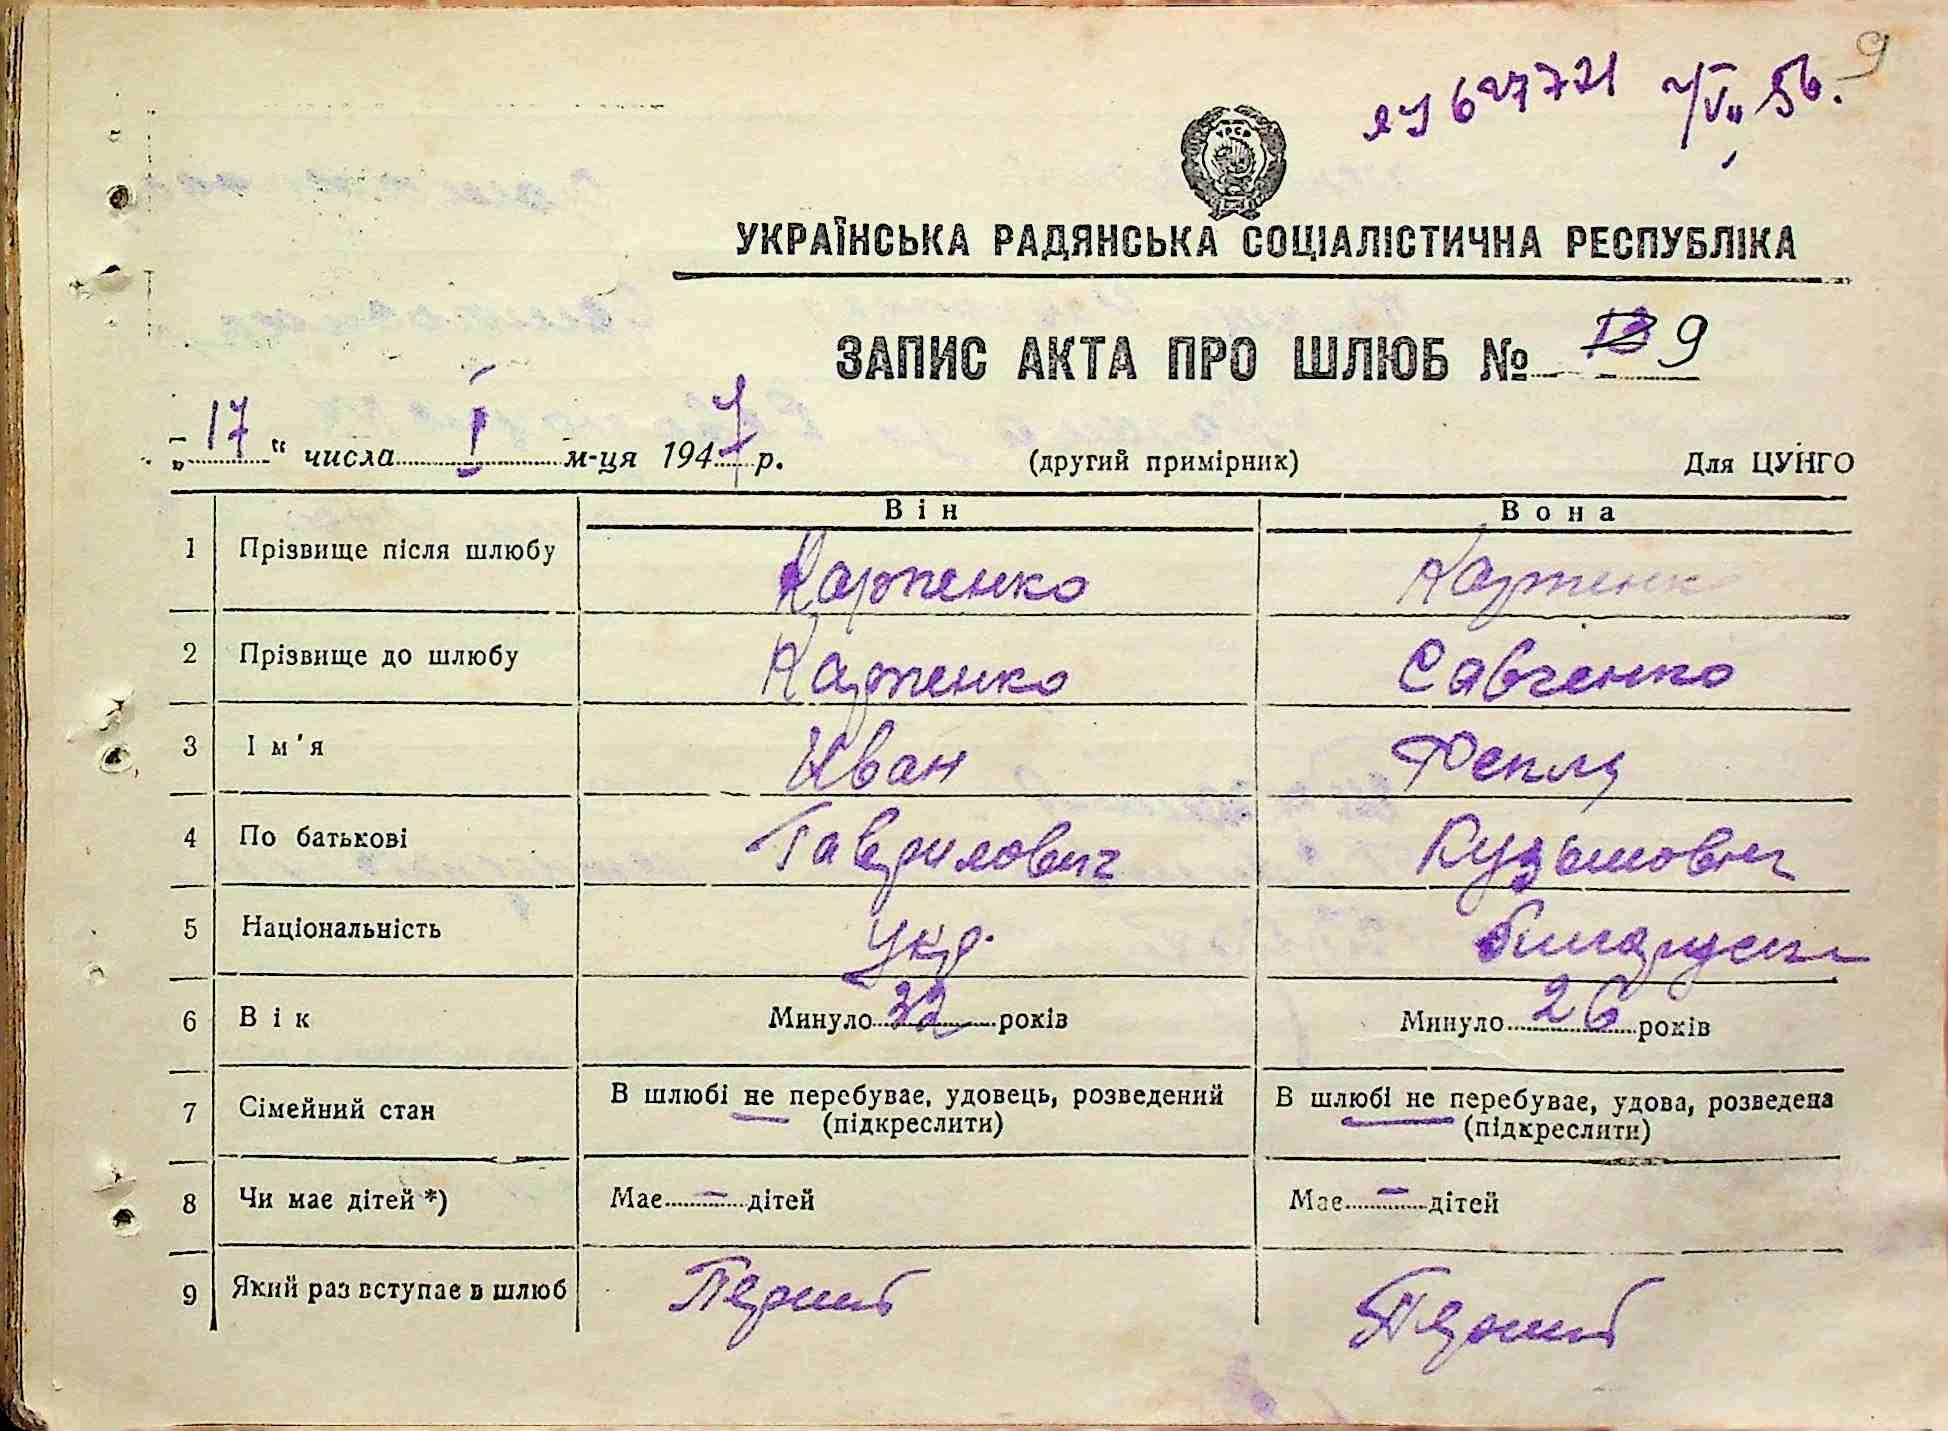 9
627721
56.
УРСР
УКРАЇНСЬКА РАДЯНСЬКА СОЦІАЛІСТИЧНА РЕСПУБЛІКА
ЗАПИС АКТА ПРО ШЛЮБ № 9
„17“ числа I м-ця 1947 р. (другий примірник) Для ЦУНГО
Він Вона
1 Прізвище після шлюбу Карпенко Карпенко
2 Прізвище до шлюбу Карпенко Савченко
3 Ім'я Иван Фекла
4 По батькові Гаврилович Кузьмовн
5 Національність Укр.
6 Вік Минуло 32 років Минуло 26 років
7 Сімейний стан В шлюбі не перебуває, удовець, розведений В шлюбі не перебуває, удова, розведена
(підкреслити) (підкреслити)
8 Чи має дітей *) Має – дітей Має – дітей
9 Який раз вступає в шлюб Перший Перший